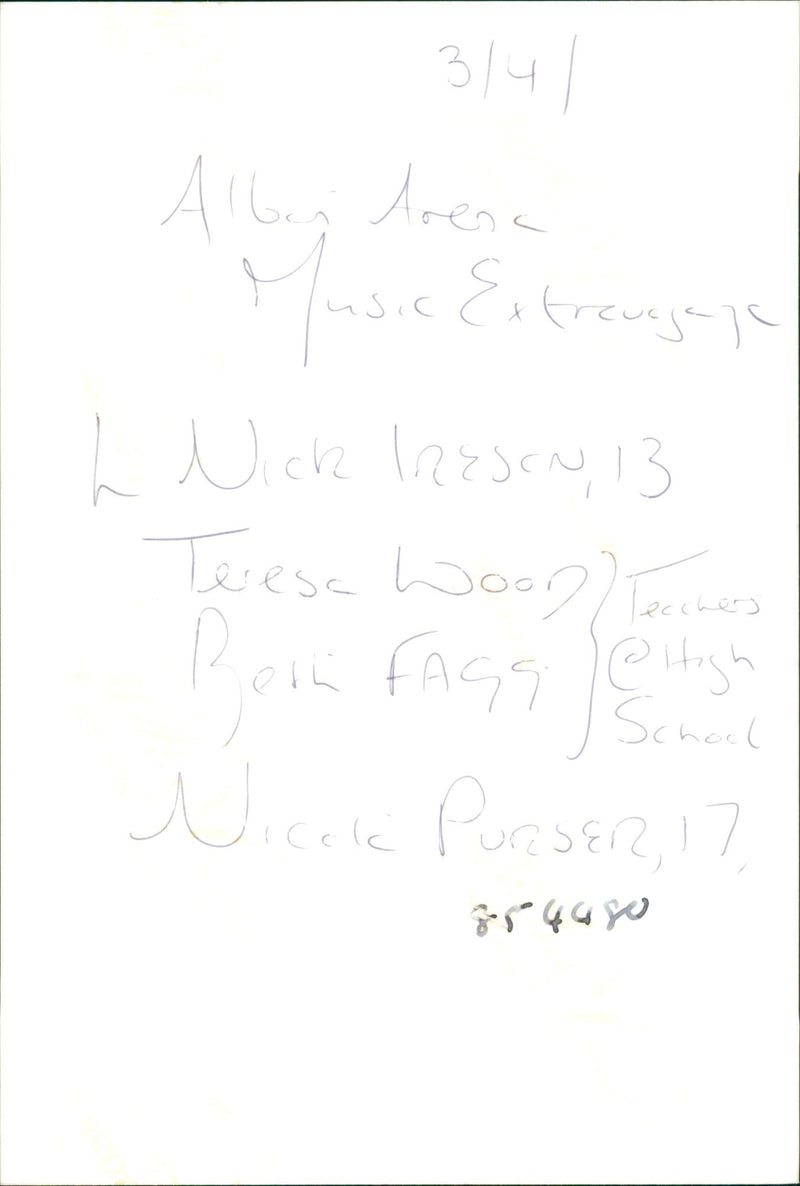 3/4/
Alban Arena
Music Extravaganza
L Nick IRESON, 13
Teresa WOOD
Beth FAGG
} Teachers
@ High
School
Nicole PURSER, 17,
854480